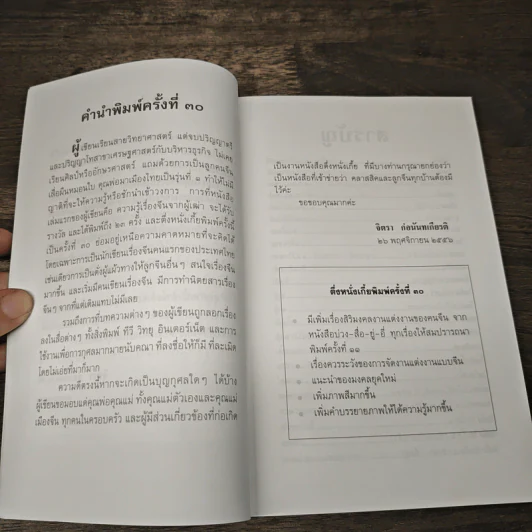 คำนำพิมพ์ครั้งที่ ๓๐
ผู้เขียนเรียนสายวิทยาศาสตร์ แต่จบปริญญาตรี
และปริญญาโทสาขาเศรษฐศาสตร์กับบริหารธุรกิจ ไม่เคย
เรียนศิลป์หรืออักษรศาสตร์ แถมด้วยการเป็นลูกคนจีน
เสื่อผืนหมอนใบ คุณพ่อมาเมืองไทยเป็นรุ่นที่ ๑ ทำให้ไม่มี
ญาติที่จะให้ความรู้หรือชักนำเข้าวงการ การที่หนังสือ
เล่มแรกของผู้เขียนคือ ความรู้เรื่องจีนจากผู้เฒ่า จะได้รับ
รางวัล และได้พิมพ์ถึง ๒๓ ครั้ง และตึ่งหนั่งเกี้ยพิมพ์ครั้งนี้
เป็นครั้งที่ ๓๐ ย่อมอยู่เหนือความคาดหมายที่จะคิดได้
โดยเฉพาะการเป็นนักเขียนเรื่องจีนคนแรกของประเทศไทย
เช่นเดียวการเป็นดั่งผู้แผ้วทางให้ลูกจีนอื่นๆ สนใจเรื่องจีน
มากขึ้น และเริ่มมีคนเขียนเรื่องจีน มีการทำนิตยสารเรื่อง
จีนๆ จากที่แต่เดิมแทบไม่มีเลย
รวมถึงการที่บทความต่างๆ ของผู้เขียนถูกลอกเรื่อง
ลงในสื่อต่างๆ ทั้งสิ่งพิมพ์ ทีวี วิทยุ อินเตอร์เน็ต และการ
ใช้งานเพื่อการกุศลมากมายนับคณา ที่ลงชื่อให้ก็มี ที่ละเมิด
โดยไม่เอ่ยที่มาก็มาก
ความดีตรงนี้หากจะเกิดเป็นบุญกุศลใดๆ ได้บ้าง
ผู้เขียนขอมอบแด่คุณพ่อคุณแม่ ทั้งคุณแม่ตัวเองและคุณแม่
เมืองจีน ทุกคนในครอบครัว และผู้มีส่วนเกี่ยวข้องที่ก่อเกิด
เป็นงานหนังสือตึ่งหนั่งเกี้ย ที่มีบางท่านกรุณายกย่องว่า
เป็นหนังสือที่เข้าข่ายว่า คลาสสิคและลูกจีนทุกบ้านต้องมี
ไว้ค่ะ
ขอขอบคุณมากค่ะ
จิตรา ก่อนันทเกียรติ
๒๖ พฤศจิกายน ๒๕๕๖
ตึ่งหนั่งเกี้ยพิมพ์ครั้งที่ ๓๐
มีเพิ่มเรื่องสิริมงคลงานแต่งงานของคนจีน จาก
หนังสือบ่วง-สื่อ-ยู่-อี่ ทุกเรื่องให้สมปรารถนา
พิมพ์ครั้งที่ ๑๑
เรื่องควรระวังของการจัดงานแต่งงานแบบจีน
แนะนำของมงคลยุคใหม่
เพิ่มภาพสีมากขึ้น
เพิ่มคำบรรยายภาพให้ได้ความรู้มากขึ้น